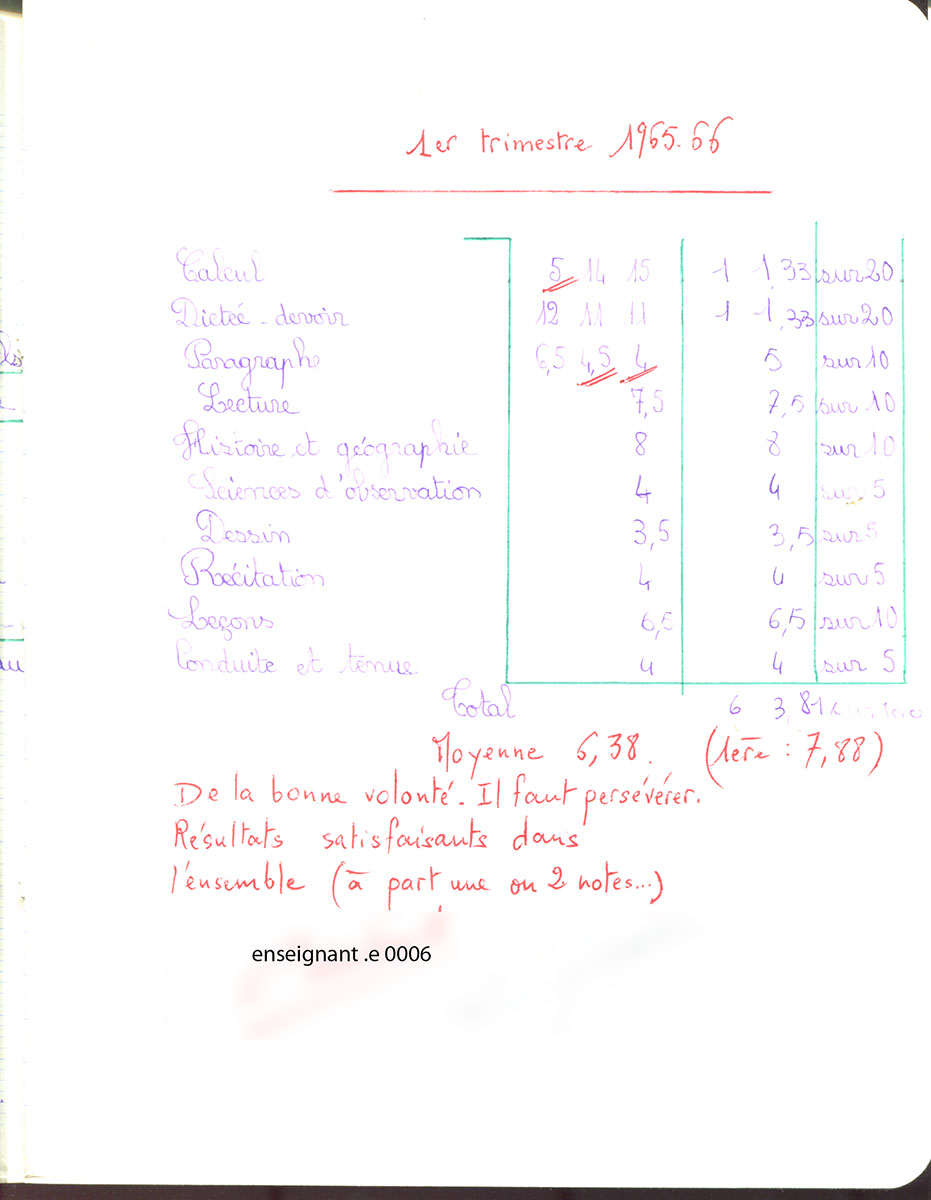 1er trimestre 1965.66
Calcul 5 14 15 1 1,33 sur 20
Dictée - devoir 12 11 11 1 1,33 sur 20
Paragraphe 6,5 4,5 4 5 sur 10
Lecture 7,5 7,5 sur 10
Histoire et géographie 8 8 sur 10
Sciences d'observation 4 4 sur 5
Dessin 3,5 3,5 sur 5
Récitation 4 4 sur 5
Leçons 6,5 6,5 sur 10
Conduite et tenue 4 4 sur 5
Total 6 3,81
Moyenne 6,38. (1ère : 7,88)
De la bonne volonté. Il faut persévérer.
Résultats satisfaisants dans
l'ensemble (à part une ou 2 notes...)
enseignant .e 0006